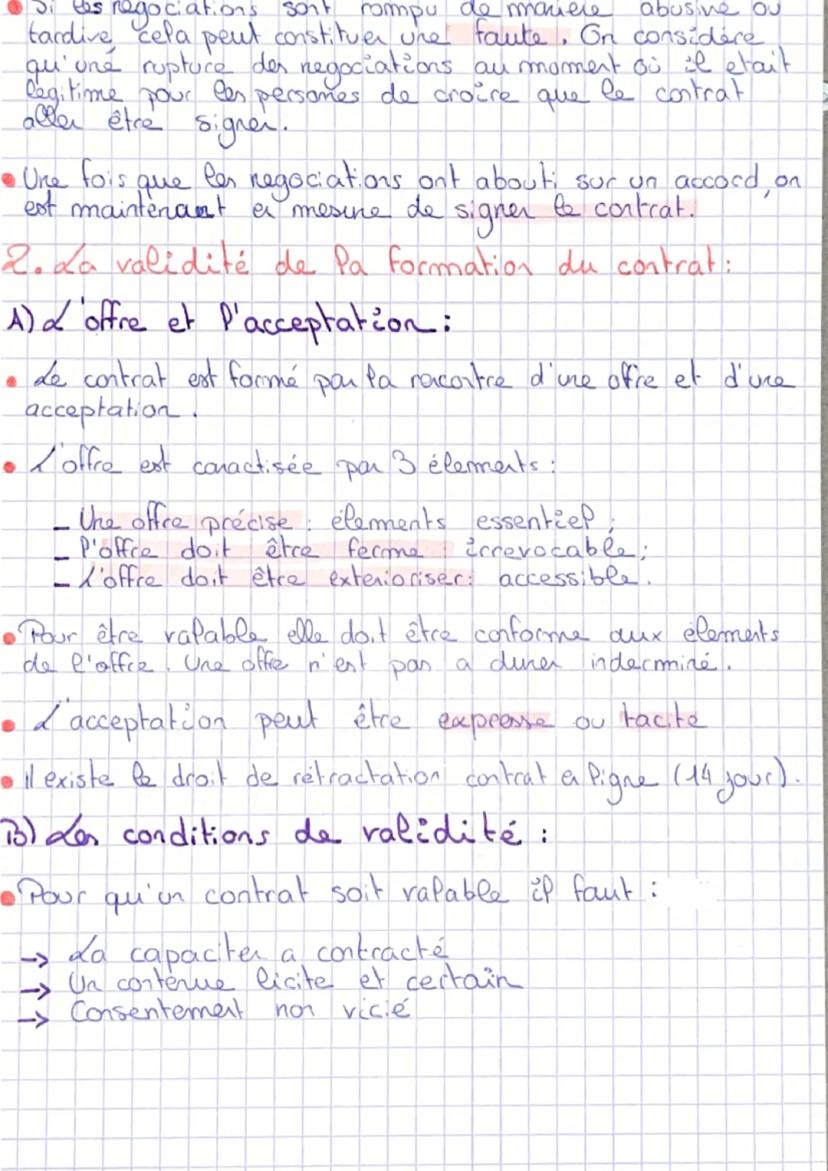 • Si les negociations sont rompu de manière abusive ou
tardive, cela peut constituer une faute. On considère
qu'une rupture des negociations au moment où il etait
légitime pour les persones de croire que le contrat
aller être signer.
• Une fois que les negociations ont abouti sur un accord, on
est maintenant en mesure de signer le contrat.
2. La validité de la formation du contrat :
A) L'offre et l'acceptation :
• Le contrat est formé par la racontre d'une offre et d'une
acceptation.
• L'offre est caractisée par 3 élements :
- Une offre précise : élements essentiel ;
- l'offre doit être ferme : irrevocable ;
- L'offre doit être exterioriser : accessible.
• Pour être valable elle doit être conforme aux élements
de l'offre. Une offre n'est pas a durer indermine.
• L'acceptation peut être expresse ou tacite
• il existe le droit de rétractation contrat en ligne (14 jour).
B) Les conditions de validité :
• Pour qu'un contrat soit valable il faut :
→ La capaciter a contracté
→ Un contenue licite et certain
→ Consentement non vicié